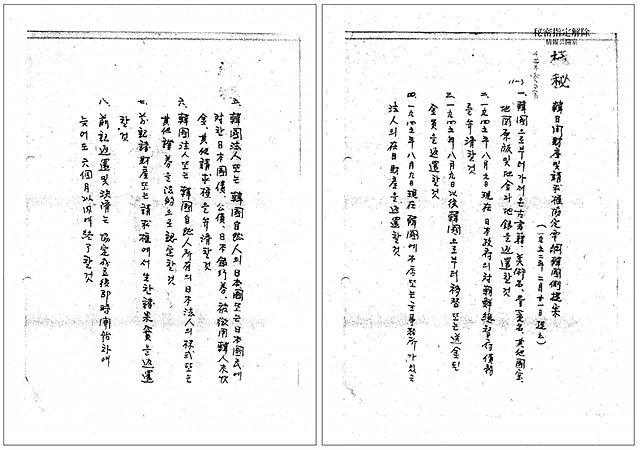 秘密指定解除
情報公開室
極秘
11-3
韓日間財産 및 請求権協定要綱韓國側提案
一、韓國으로부터 가져온 古書籍、美術品、骨董品、其他國宝、
地図原版 및 地金과 地銀을 返還할 것
二、一九四五年八月九日現在 日本政府의 対朝鮮總督府債務
를 弁済할 것
三、一九四五年八月九日以後 韓國으로부터 移替 또는 送金된
金員을 返還할 것
四、一九四五年八月九日現在 韓國에 本店 또는 主事務所가 있는
法人의 在日財産을 返還할 것
五、韓國法人 또는 韓國自然人의 日本國 또는 日本國民에
対한 日本國債、公債、日本銀行券、被徴用韓人未收
金、其他請求権을 弁済할 것
六、韓國法人 또는 韓國自然人所有의 日本法人의 株式 또는
其他證券을 法的으로 認定할 것
七、前記諸財産 또는 請求権에서 生한 諸果實을 返還
할 것
八、前記返還 및 決済는 協定成立後 即時開始하여
늦어도 六個月以内에 終了할 것